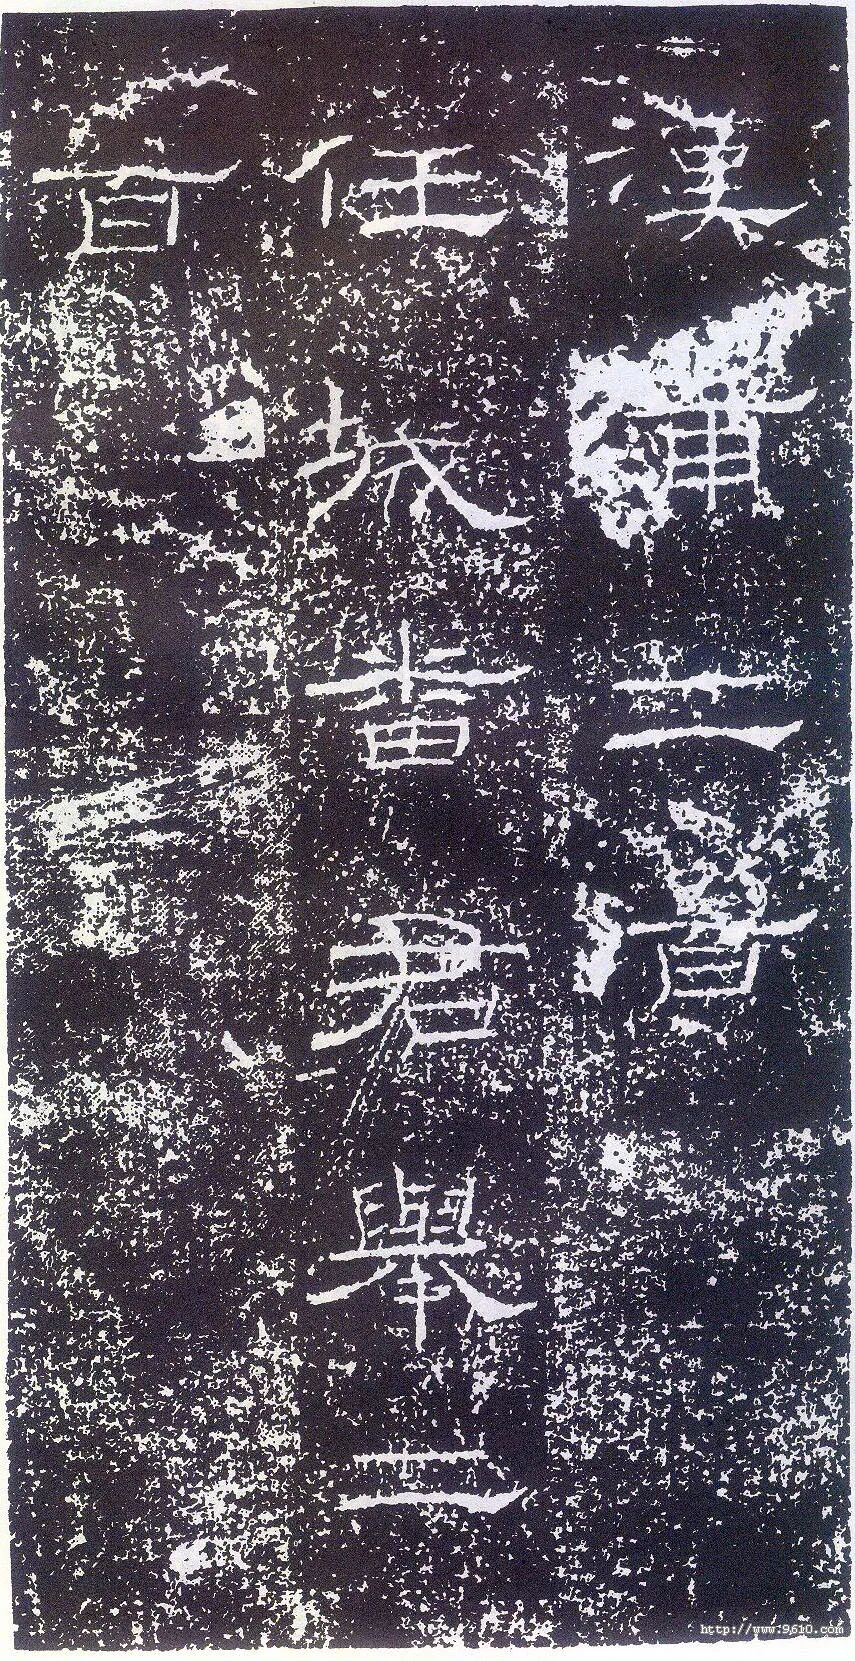 漢甫二百
任城番君舉二
百
http://www.9610.com